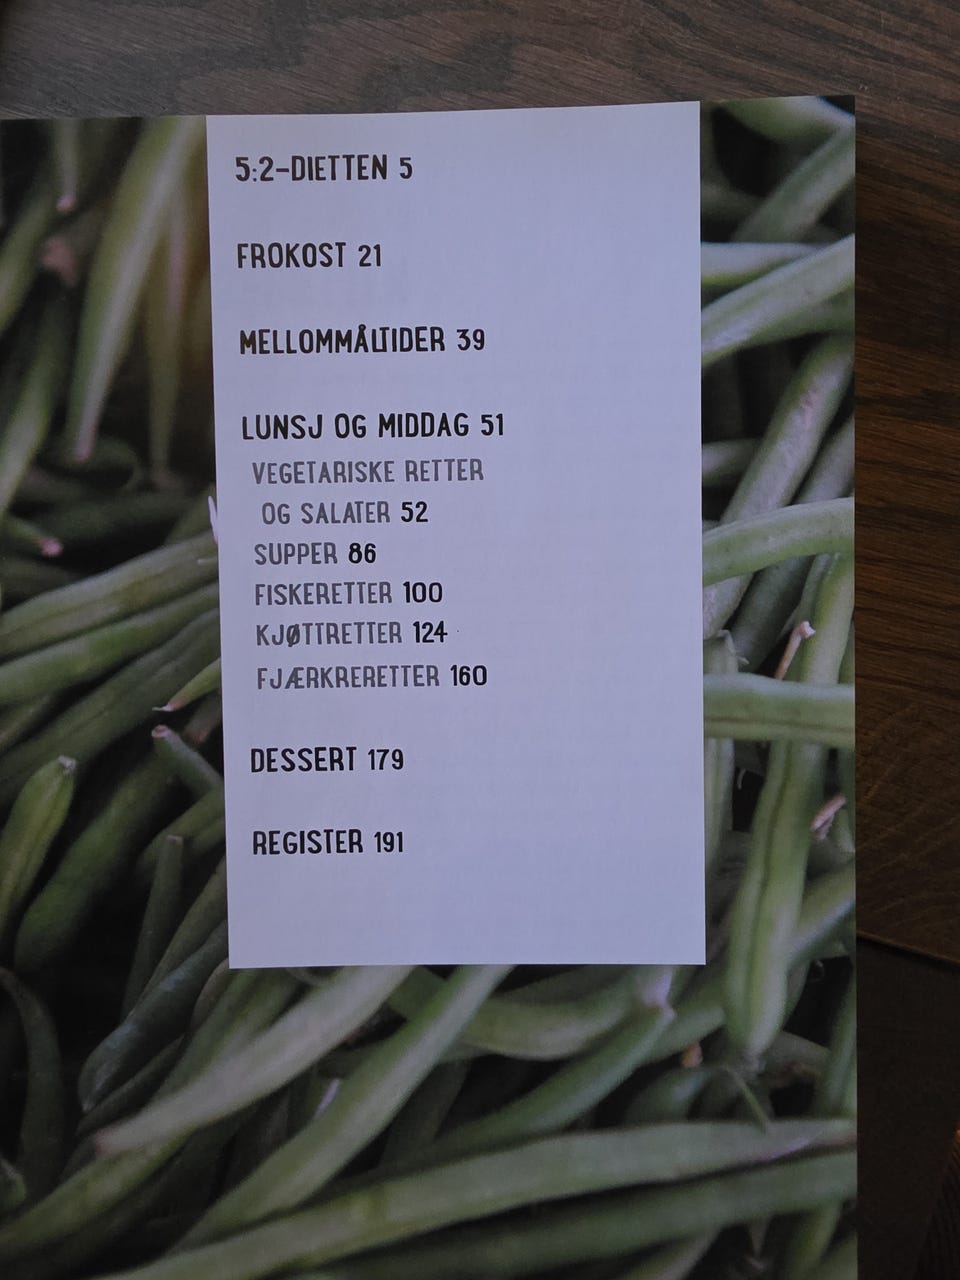 5:2-DIETTEN 5
FROKOST 21
MELLOMMÅLTIDER 39
LUNSJ OG MIDDAG 51
VEGETARISKE RETTER
OG SALATER 52
SUPPER 86
FISKERETTER 100
KJØTTRETTER 124
FJÆRKRERETTER 160
DESSERT 179
REGISTER 191